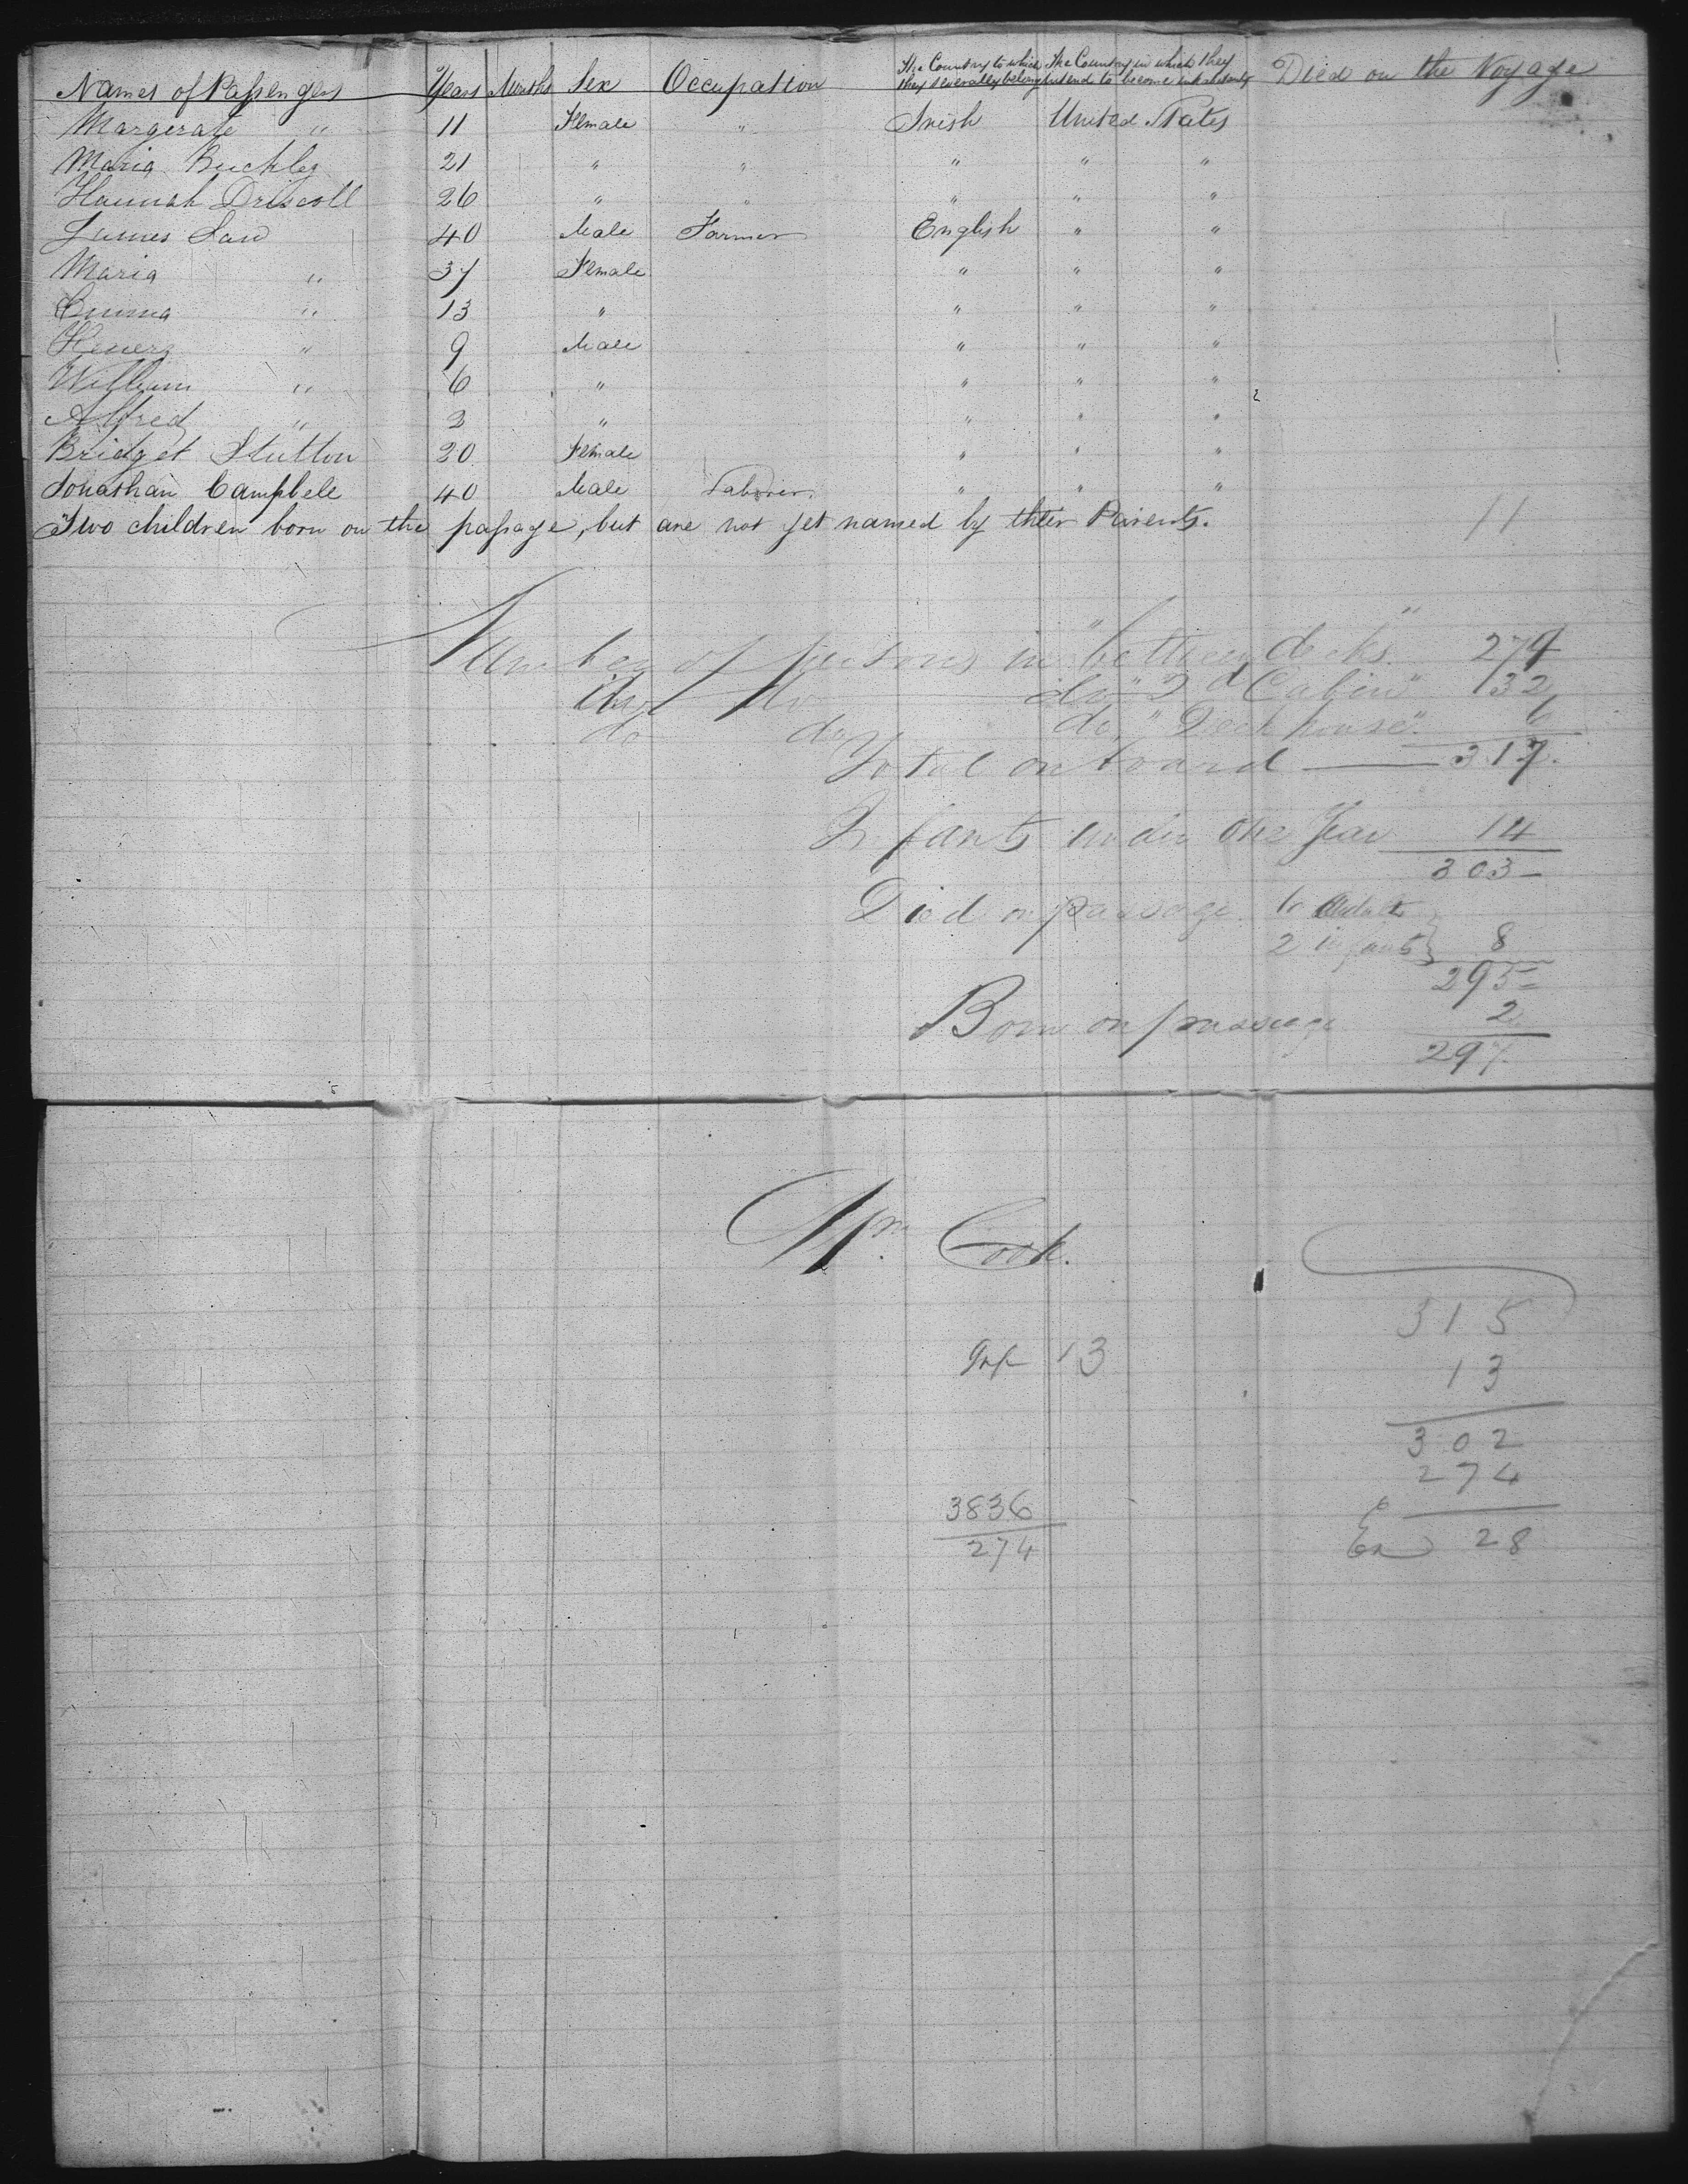 Names of Passengers Years Months Sex Occupation The Country to which they severally belong The Country in which they intend to become inhabitants Died on the Voyage
Margerate " 11 Female " Irish United States
Maria Buckley 21 " " " " "
Hannah Driscoll 26 " " " " "
James Law 40 Male Farmer English " "
Maria " 37 Female " " "
Emma " 13 " " " "
Henery " 9 Male " " "
William " 6 " " " "
Alfred " 2 " " " "
Bridget Stutton 20 Female " " "
Jonathan Campbele 40 Male Laborer " " "
Two children born on the passage, but are not yet named by their Parents.
11
Number of persons in "between decks" 279
do do do "2d Cabin" 32
do do do "Deck house" 6
Total on board 317.
Infants under one Year 14
303
Died on passage 6 Adults
2 infants } 8
295
Born on passage 2
297
Wm Cook.
315
Inf 13 13
302
274
3836
274
Ex 28